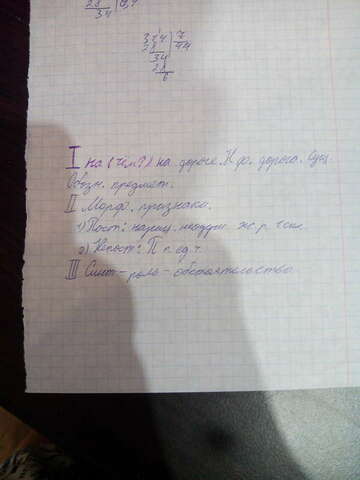 28 34
314 7
28 44
34
28
6
I на (чём?) на дороге. Н.ф. дорога. Сущ.
Обозн. предмет.
II Морф. признаки.
1) Пост: нариц. неодуш. ж.р. 1 скл.
2) Непост: П п. ед.ч.
III Синт-роль-обстоятельство